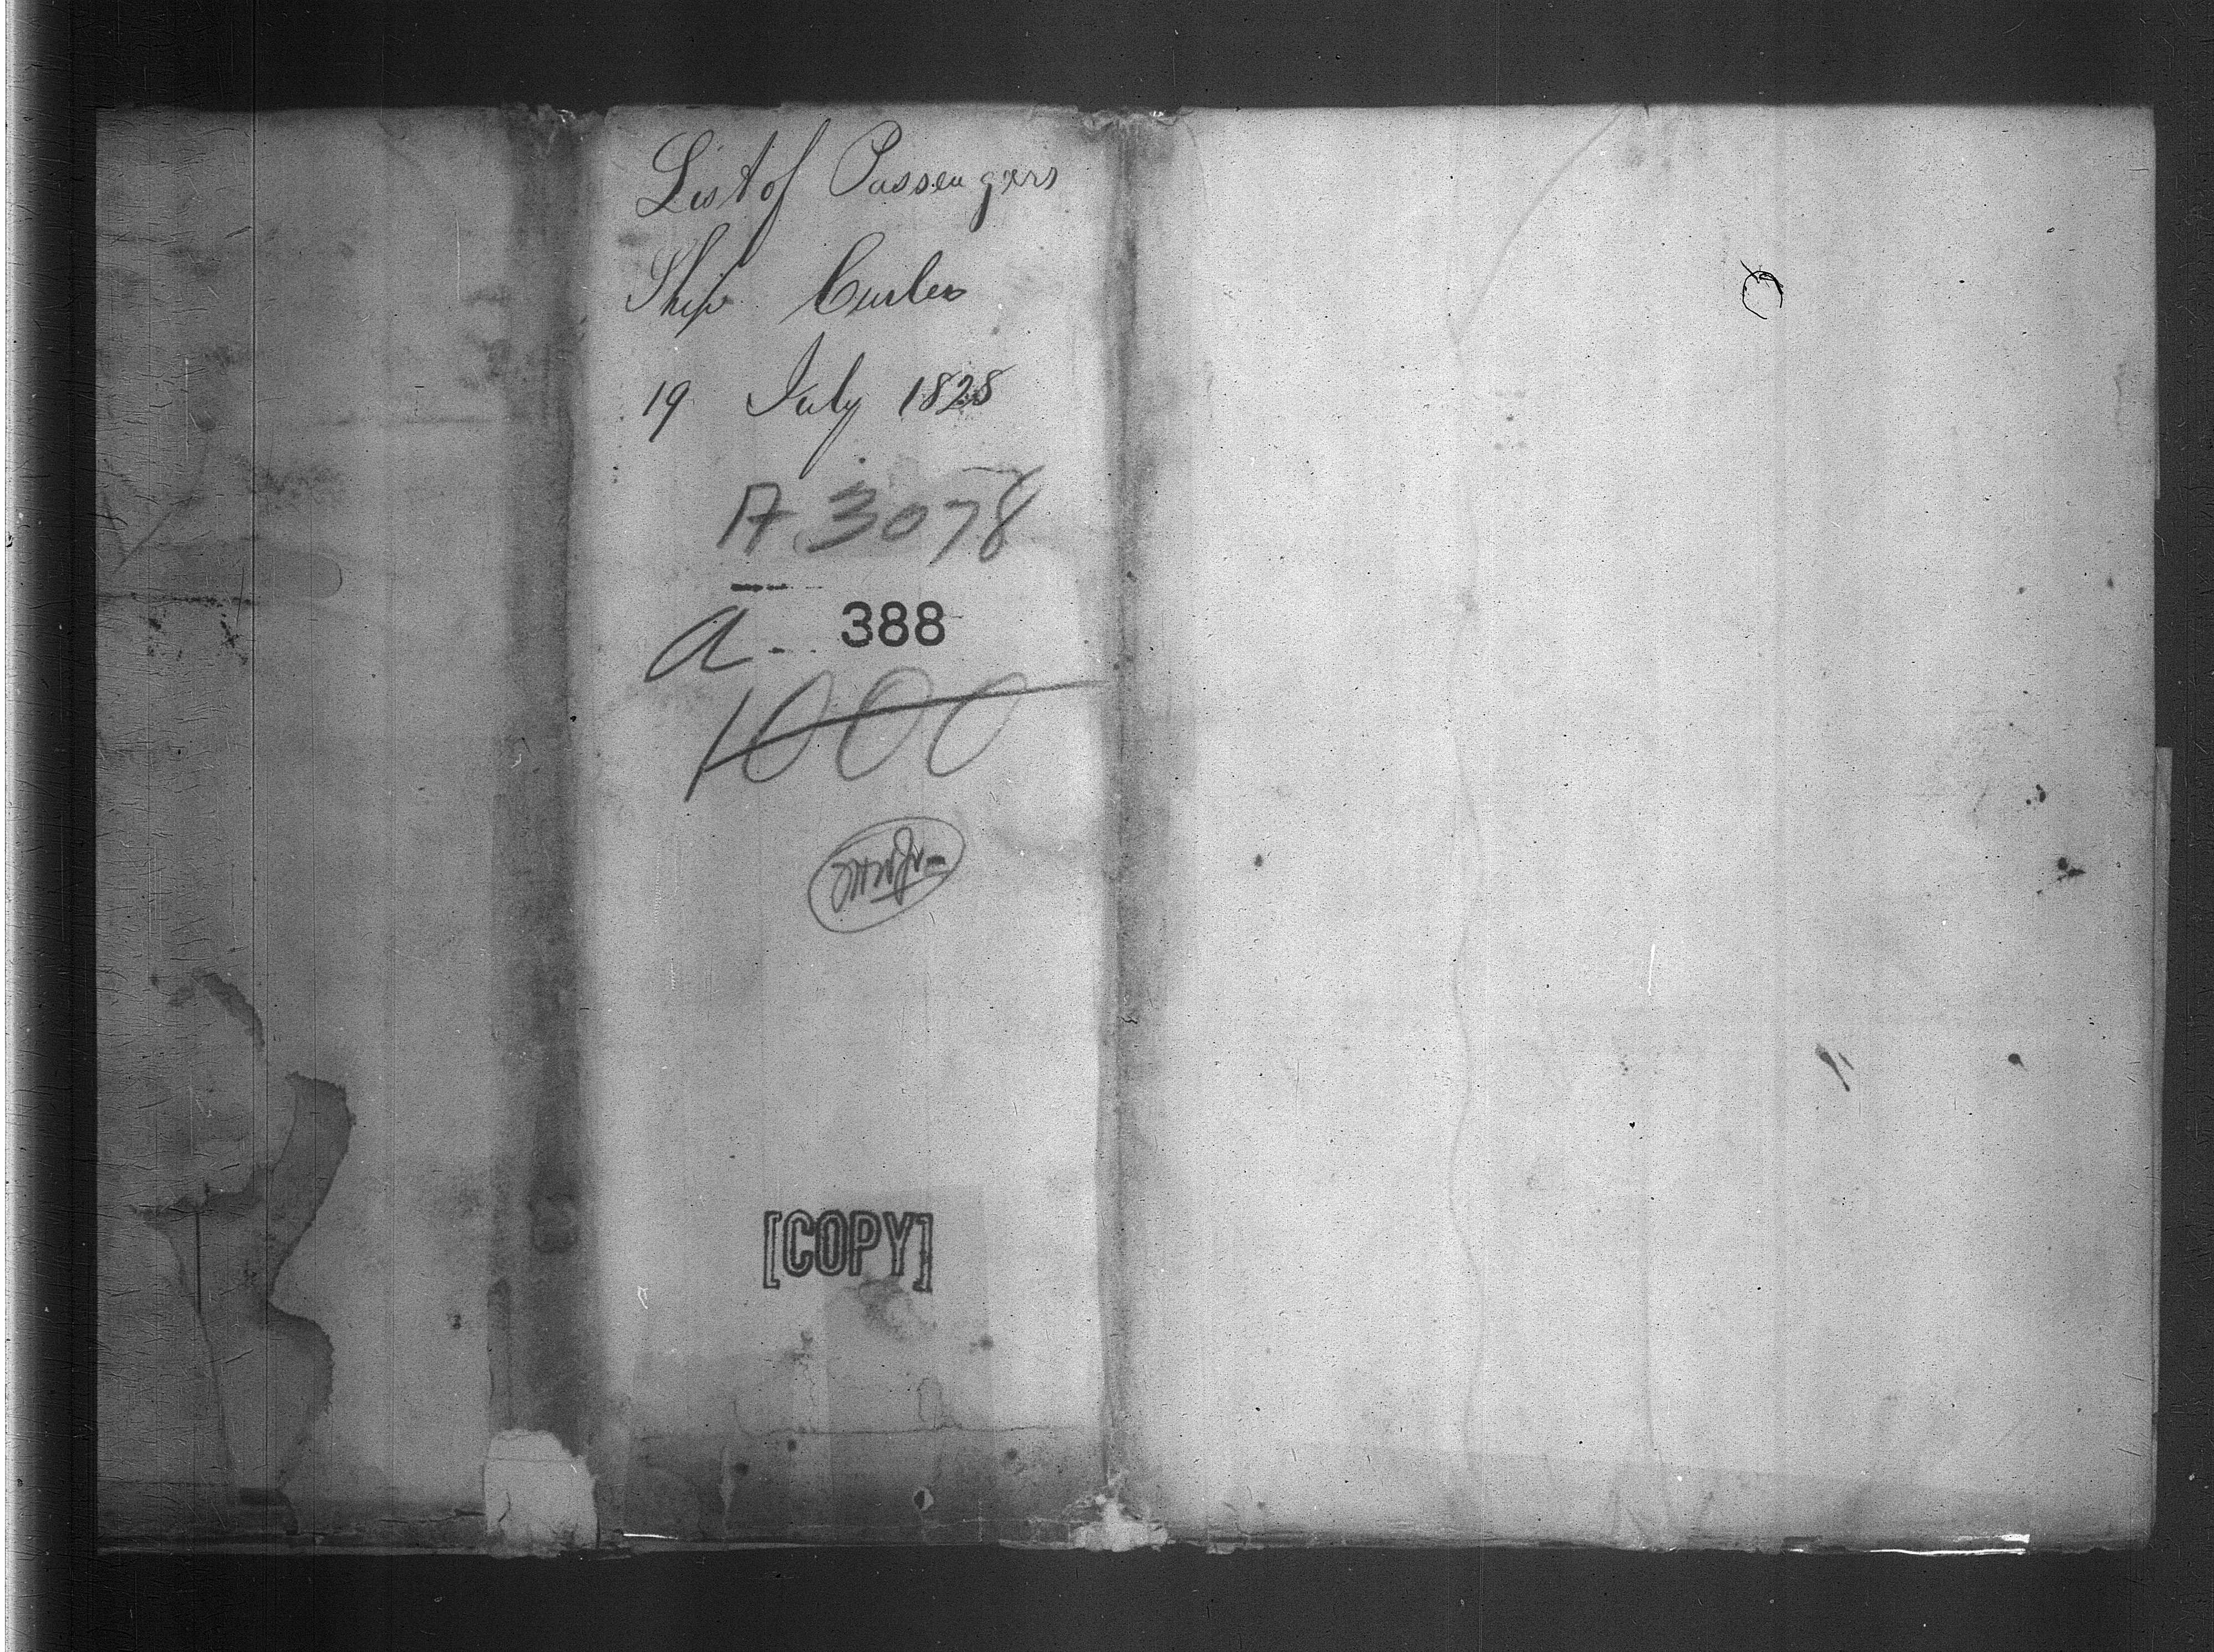 List of Passengers
Ship Curlew
19 July 1828
A 3078
a 388
1000
[COPY]